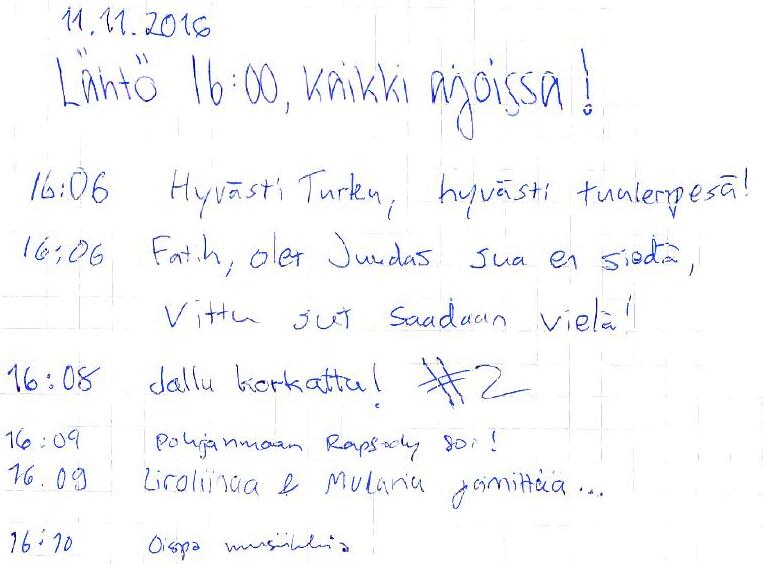 11.11.2016
Lähtö 16:00, kaikki ajoissa!
16:06 Hyvästi Turku, hyvästi tuulenpesä!
16:06 Fatih, olet Juudas sua en siedä,
Vittu sut saadaan vielä!
16:08 Jallu korkattu! #2
16:09 Pohjanmaan Rapsody soi!
16.09 Liroliinaa & Mulania jämittää...
16:10 Oispa musiikkia